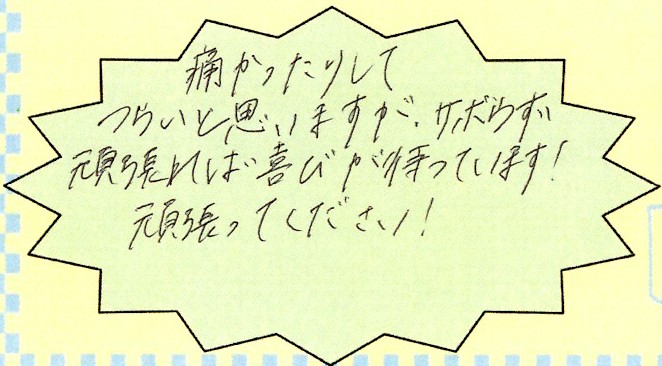 痛かったりして
つらいと思いますが、サボらず
頑張れば喜びが待っています!
頑張ってください!